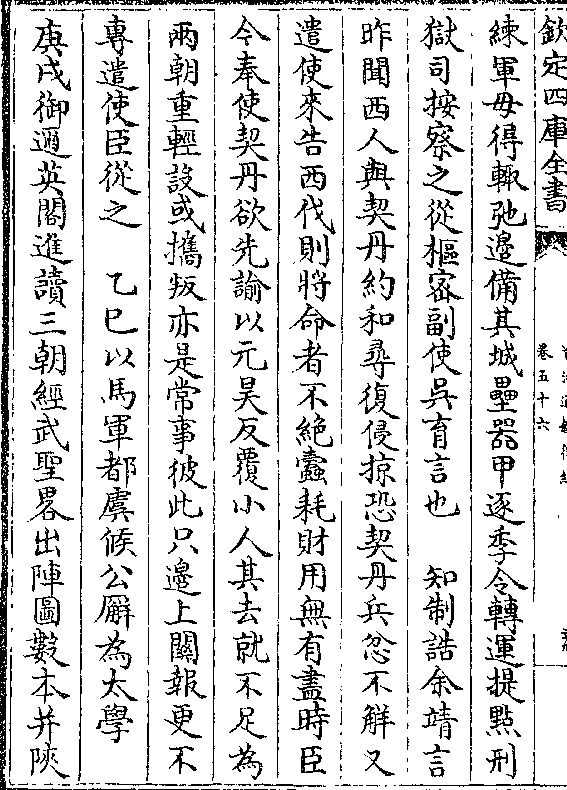 欽定四庫全書
卷五十六
練軍毋得輙弛邉備其城壘器甲逐季令轉運提㸃刑
獄司按察之從樞宻副使呉育言也　知制誥余靖言
昨聞西人與契丹約和尋復侵掠恐契丹兵忿不解又
遣使來告西伐則將命者不絶蠧耗財用無有盡時臣
今奉使契丹欲先諭以元昊反覆小人其去就不足為
兩朝重輕設或攜叛亦是常事彼此只邉上關報更不
專遣使臣從之　乙巳以馬軍都虞候公廨為太學
庚戌御邇英閣進讀三朝經武聖畧出陣圖數本并陜